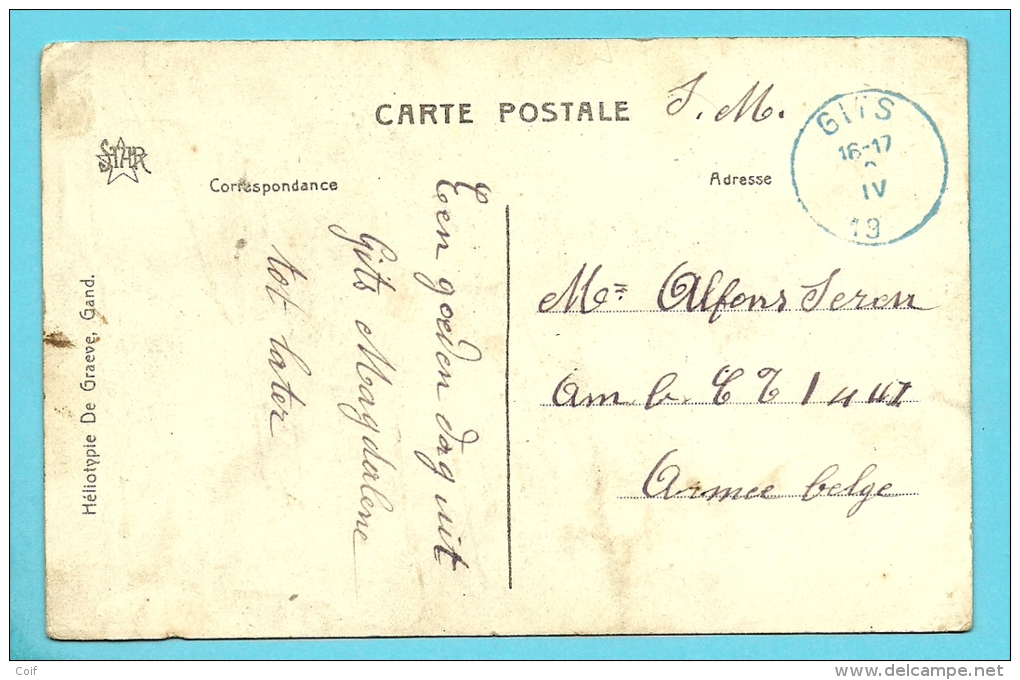 CARTE POSTALE
S. M.
GITS
16-17
IV
19
STAR
Correspondance
Adresse
Een goeden dag uit
Gits Magdalene
tot later
Mr. Alfons Seron
Armee belge
Héliotypie De Graeve, Gand.
Coif
www.delcampe.net